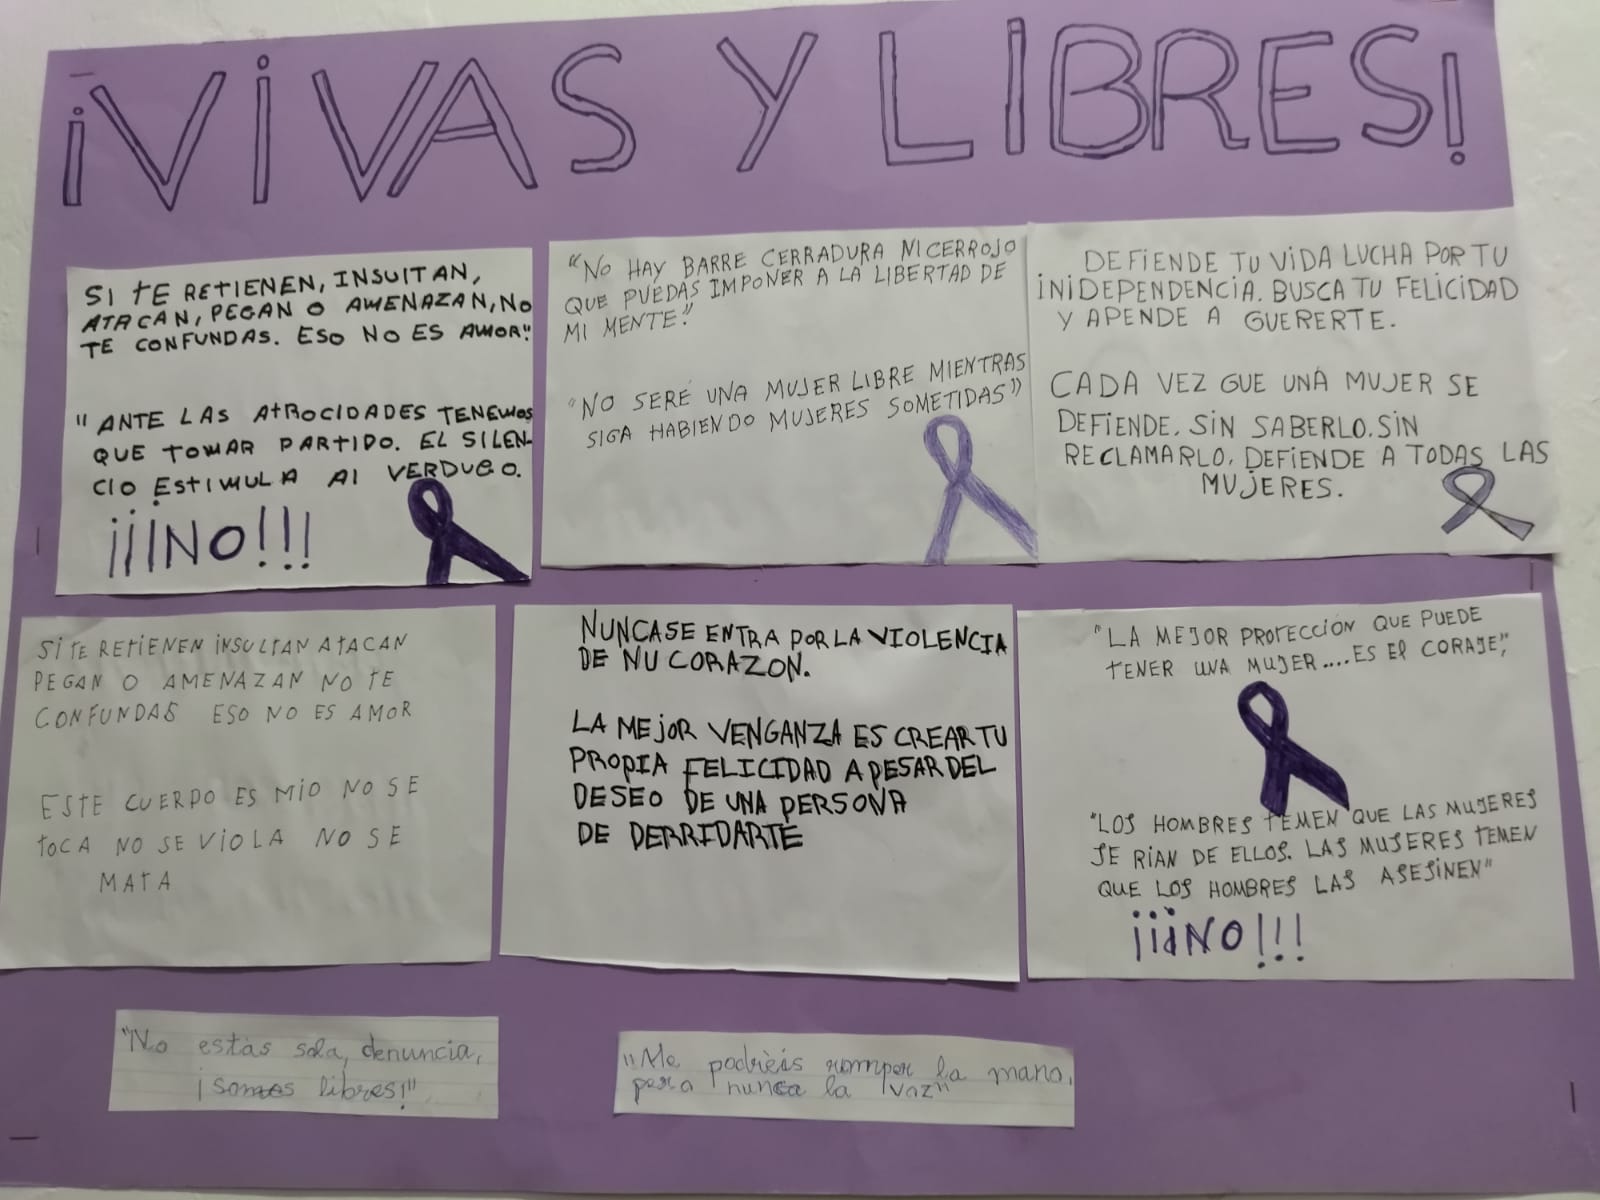 ¡VIVAS Y LIBRES!
SI TE RETIENEN, INSUITAN,
ATACAN, PEGAN O AMENAZAN, NO
TE CONFUNDAS. ESO NO ES AMOR."
"ANTE LAS ATROCIDADES TENEMOS
QUE TOMAR PARTIDO. EL SILEN-
CIO ESTIMULA AI VERDUGO.
¡¡¡NO!!!
"NO HAY BARRE CERRADURA NI CERROJO
QUE PUEDAS IMPONER A LA LIBERTAD DE
MI MENTE."
"NO SERÉ UNA MUJER LIBRE MIENTRAS
SIGA HABIENDO MUJERES SOMETIDAS"
DEFIENDE TU VIDA LUCHA POR TU
INIDEPENDENCIA. BUSCA TU FELICIDAD
Y APENDE A GUERERTE.
CADA VEZ GUE UNA MUJER SE
DEFIENDE. SIN SABERLO. SIN
RECLAMARLO. DEFIENDE A TODAS LAS
MUJERES.
SI TE RETIENEN INSULTAN ATACAN
PEGAN O AMENAZAN NO TE
CONFUNDAS ESO NO ES AMOR
ESTE CUERPO ES MIO NO SE
TOCA NO SE VIOLA NO SE
MATA
NUNCASE ENTRA POR LA VIOLENCIA
DE NU CORAZON.
LA MEJOR VENGANZA ES CREAR TU
PROPIA FELICIDAD A PESAR DEL
DESEO DE UNA PERSONA
DE DERRIDARTE
"LA MEJOR PROTECCIÓN QUE PUEDE
TENER UNA MUJER....ES El CORAJE",
"LOS HOMBRES TEMEN QUE LAS MUJERES
SE RIAN DE ELLOS. LAS MUJERES TEMEN
QUE LOS HOMBRES LAS ASESINEN"
¡¡¡NO!!!
"No estás sola, denuncia,
¡somos libres!"
"Me podrièis romper la mano,
pero nunca la voz"